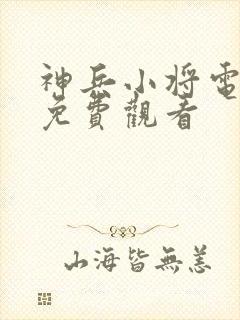 神兵小将電
免費觀看
山海皆無恙